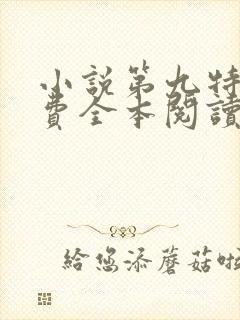 小說第九特
費全本閱讀
給您添蘑菇啦